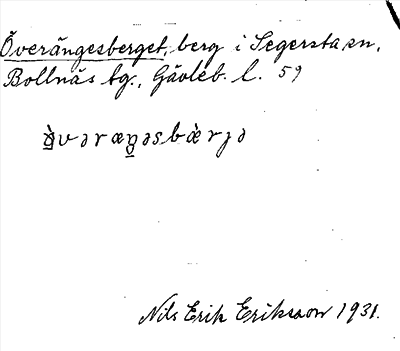 Överängesberget, berg i Segersta sn,
Bollnäs tg., Gävleb. l. 59
ø̀vəræŋəsbæ̀rjə
Nils Erik Eriksson 1931.